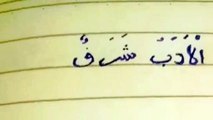 اَلْأَدَبُ شَرَفٌ